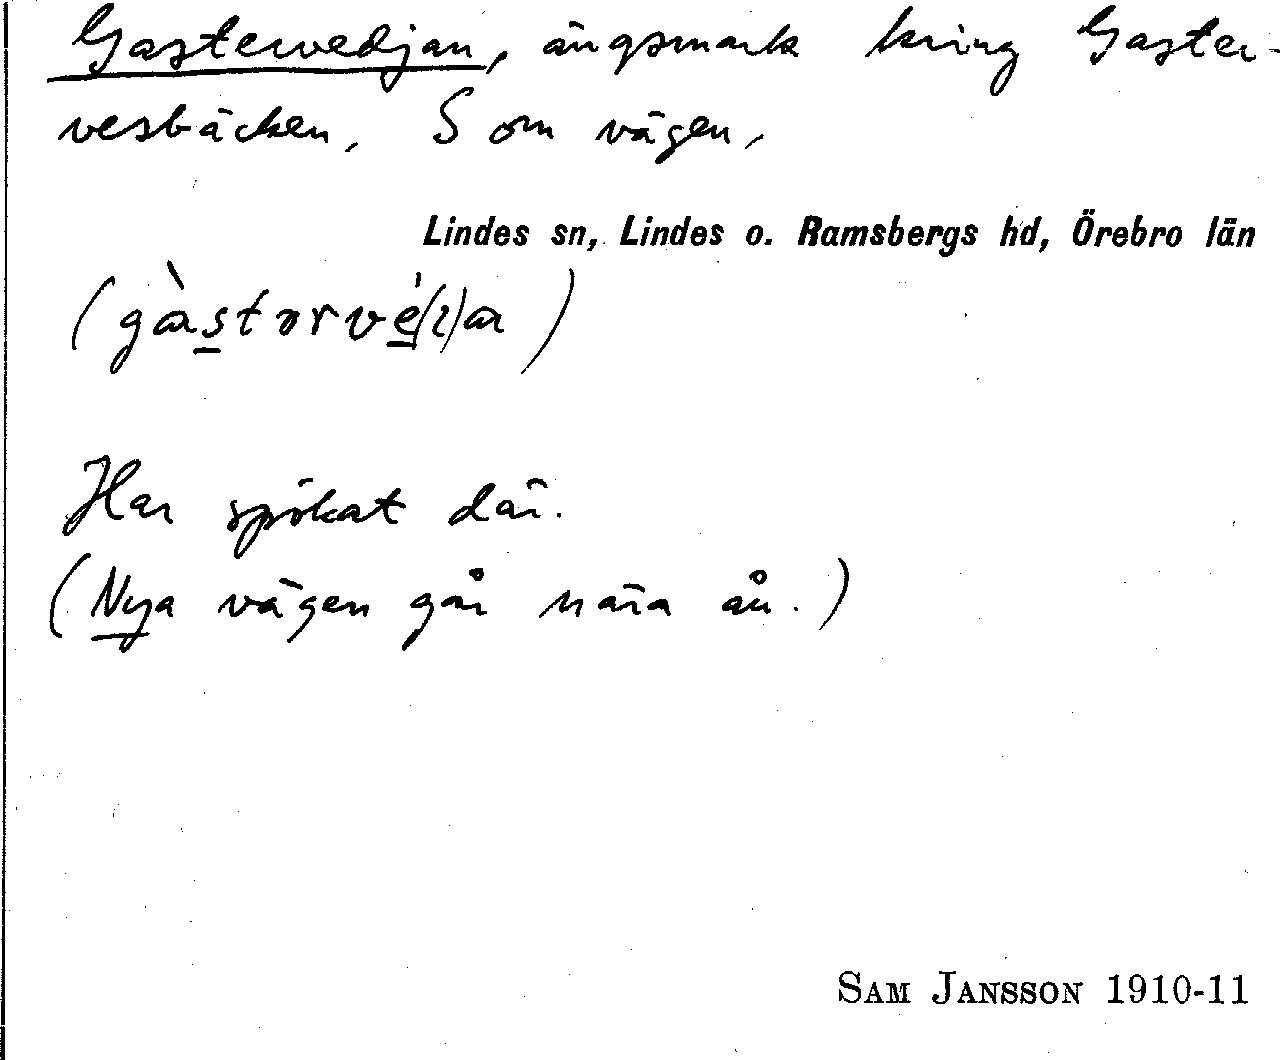 Gastervedjan, ängsmark kring Gaster-
vesbäcken, S om vägen,
Lindes sn, Lindes o. Ramsbergs hd, Örebro län
(gàstərvé(ı)a)
Har spökat där.
(Nya vägen går nära ån.)
SAM JANSSON 1910-11